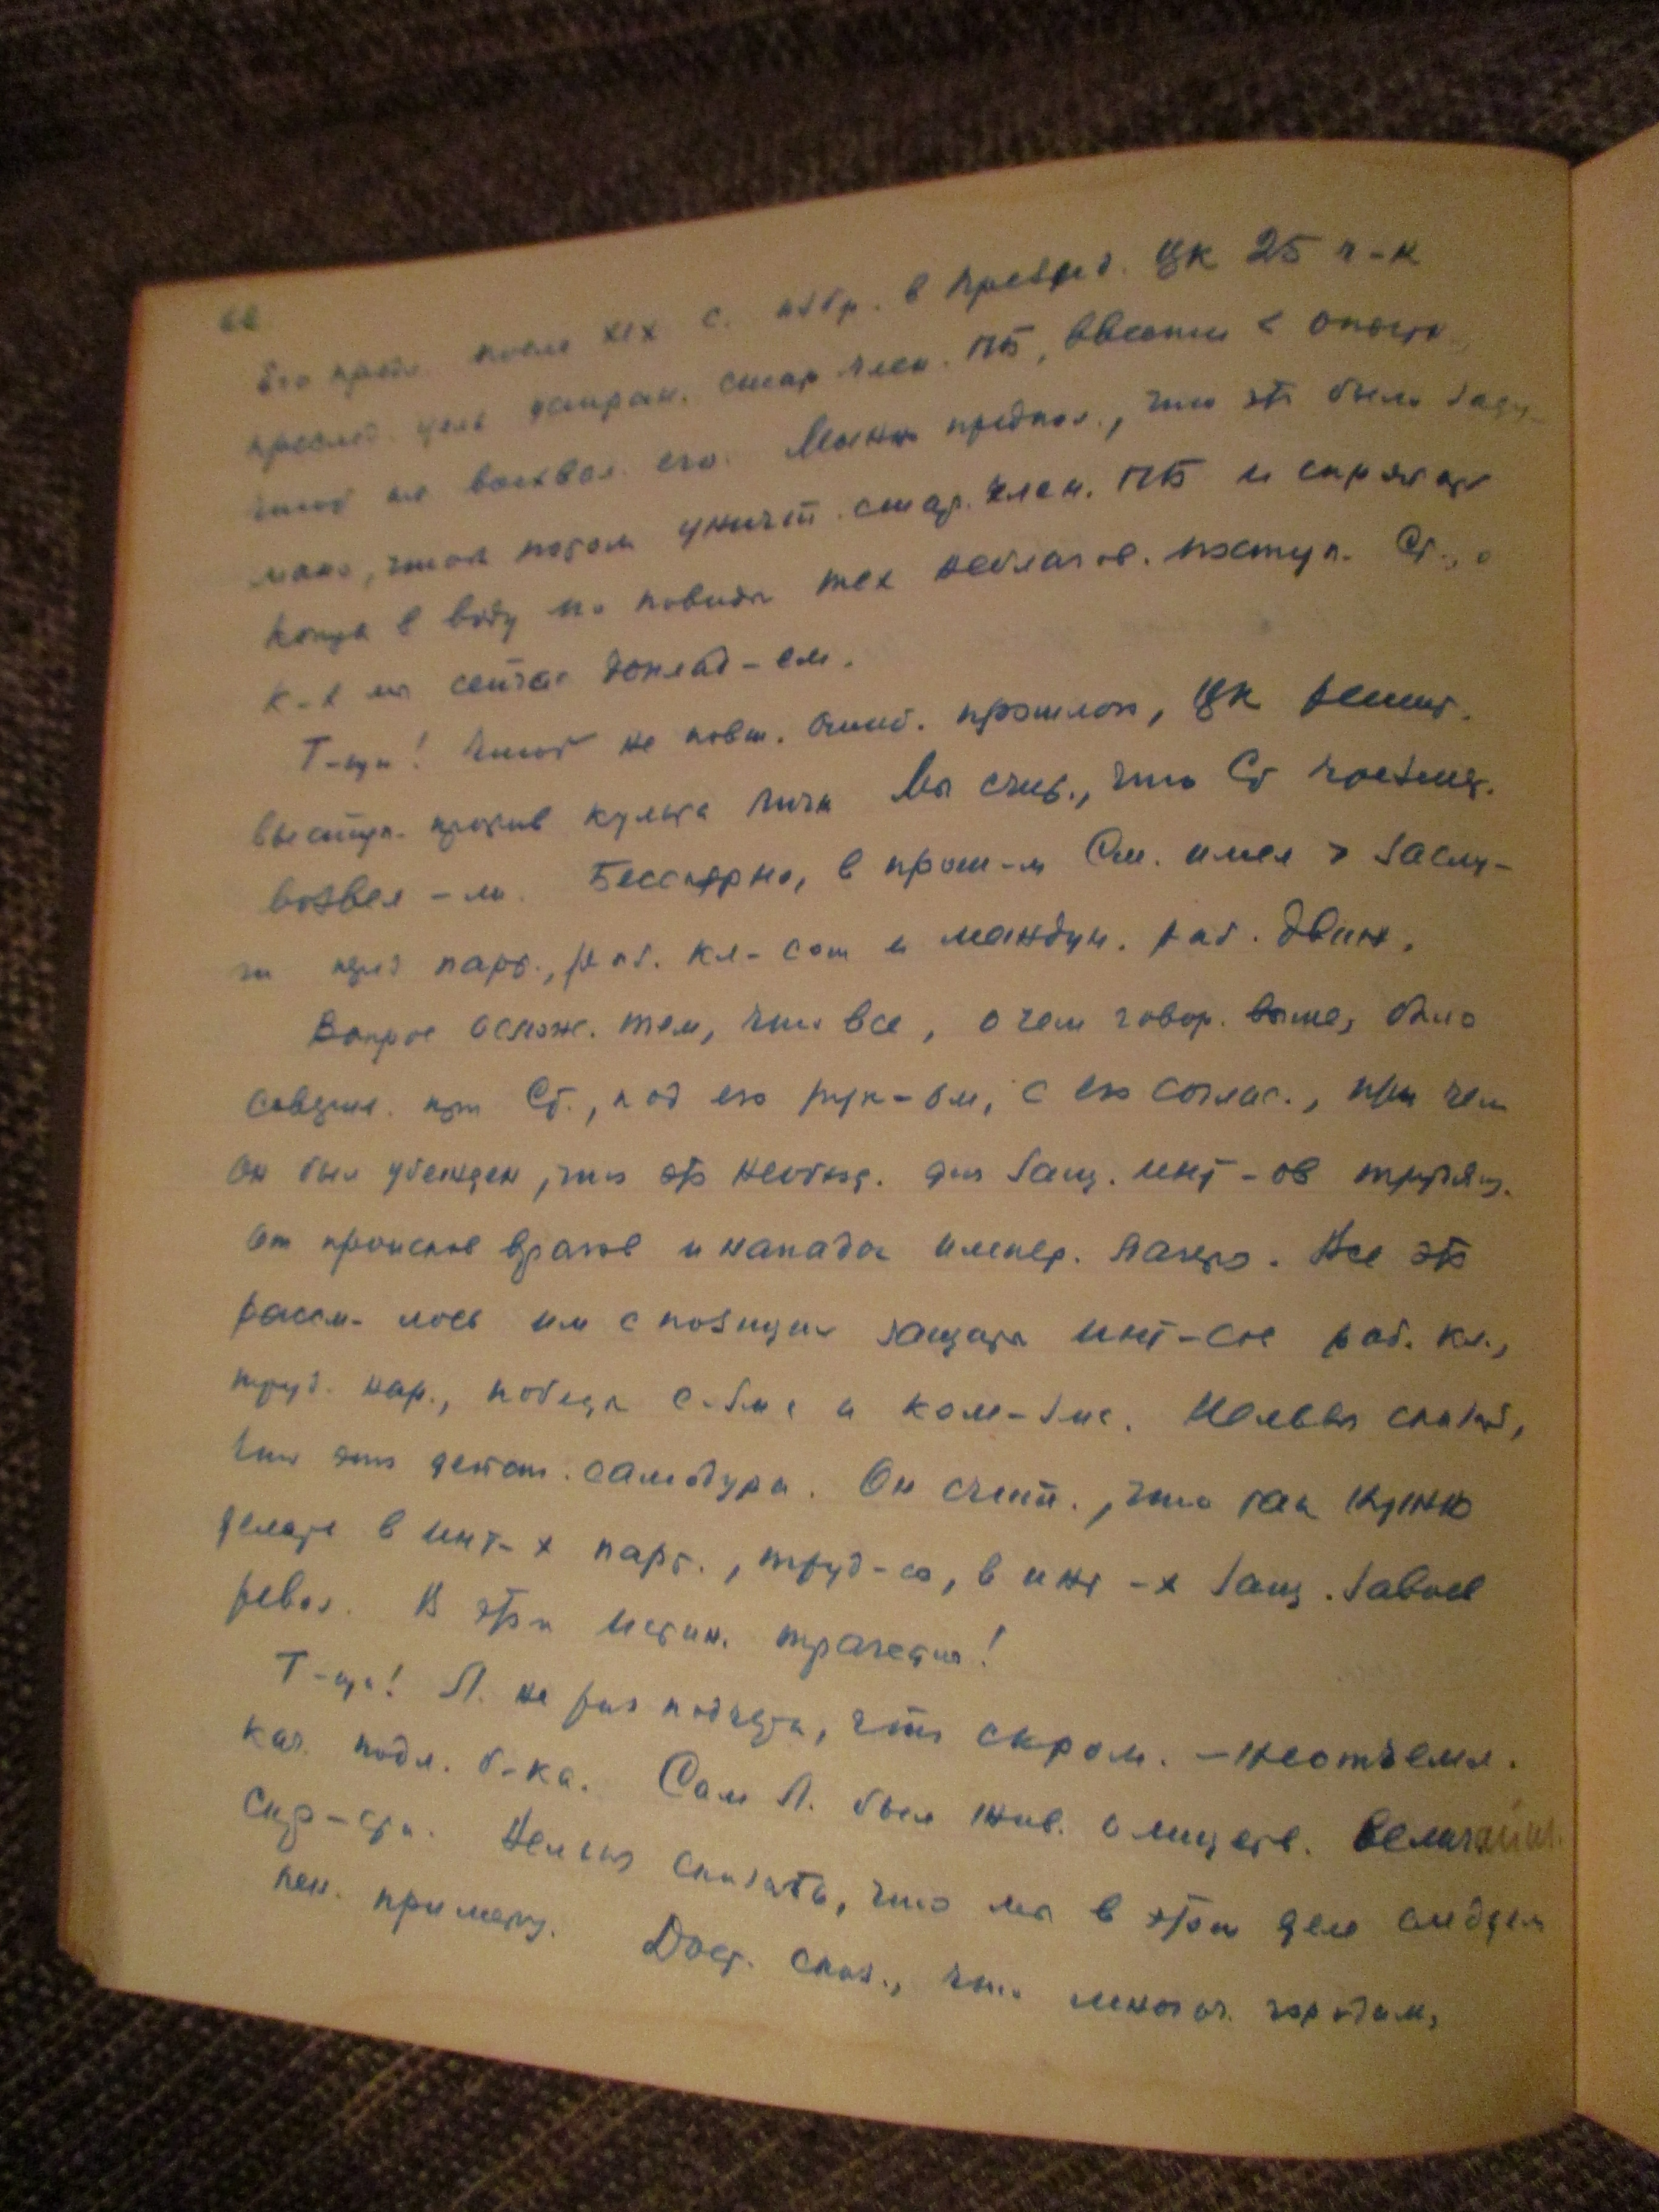 Его предл. после XIX с. избр. в Презид. ЦК 25 ч-к
преслед. цель устран. стар член. ПБ, ввести < опытн.
чтоб их восхвал. его. Можно предпол., что эт было заду-
мано, чтоб потом уничт. стар. член. ПБ и спрятат
концы в воду по поводу тех неблагов. поступ. Ст., о
к-х мы сейчас доклад-ем.
Т-щи! Чтоб не повт. ошиб. прошлого, ЦК решит.
выступ. против культа личн Мы счит., что Ст чрезмер.
возвел-ли. Бесспорно, в прош-м Ст. имел > заслу-
ги пред парт., раб. кл-сом и междун. раб. движ.
Вопрос осложн. тем, что все, о чем говор. выше, было
соверш. при Ст., под его рук-ом, с его соглас., при чем
он был убежден, что эт необход. для защ. инт-ов трудящ.
от происков врагов и нападок импер. лагеря. Все эт
рассм-лось им с позиции защиты инт-сов раб. кл.,
труд. нар., победы с-зма и ком-зма. Нельзя сказат,
что это действ. самодура. Он счит., что так нужно
делать в инт-х парт., труд-ся, в инт-х защ. завоев
револ. В этом истин. трагедия!
Т-щи! Л. не раз подчерк, что скром. - неотъемл.
кач. подл. б-ка. Сам Л. был жив. олицетв. величайш.
скр-сти. Нельзя сказать, что мы в этом деле следуем
лен. примеру. Дост. сказ., что многоч. городам,